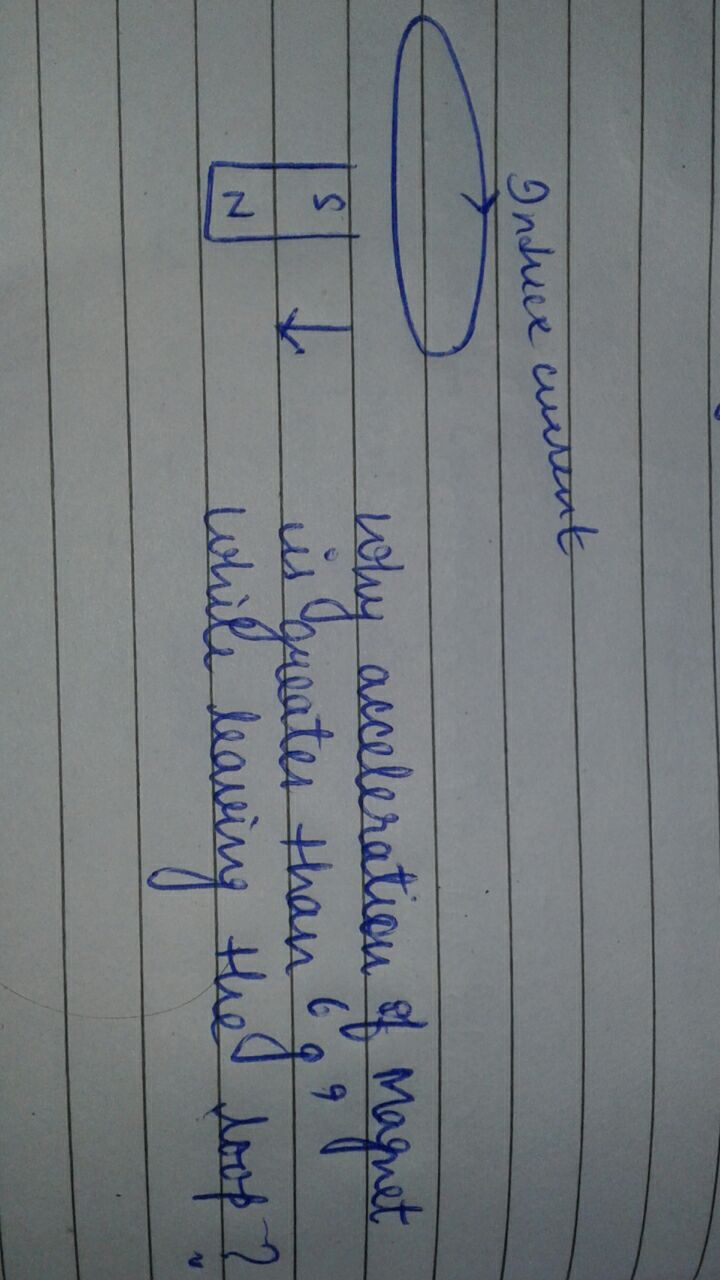 Induce current
S
N
why acceleration of Magnet
is greater than 'g'
while leaving the loop?